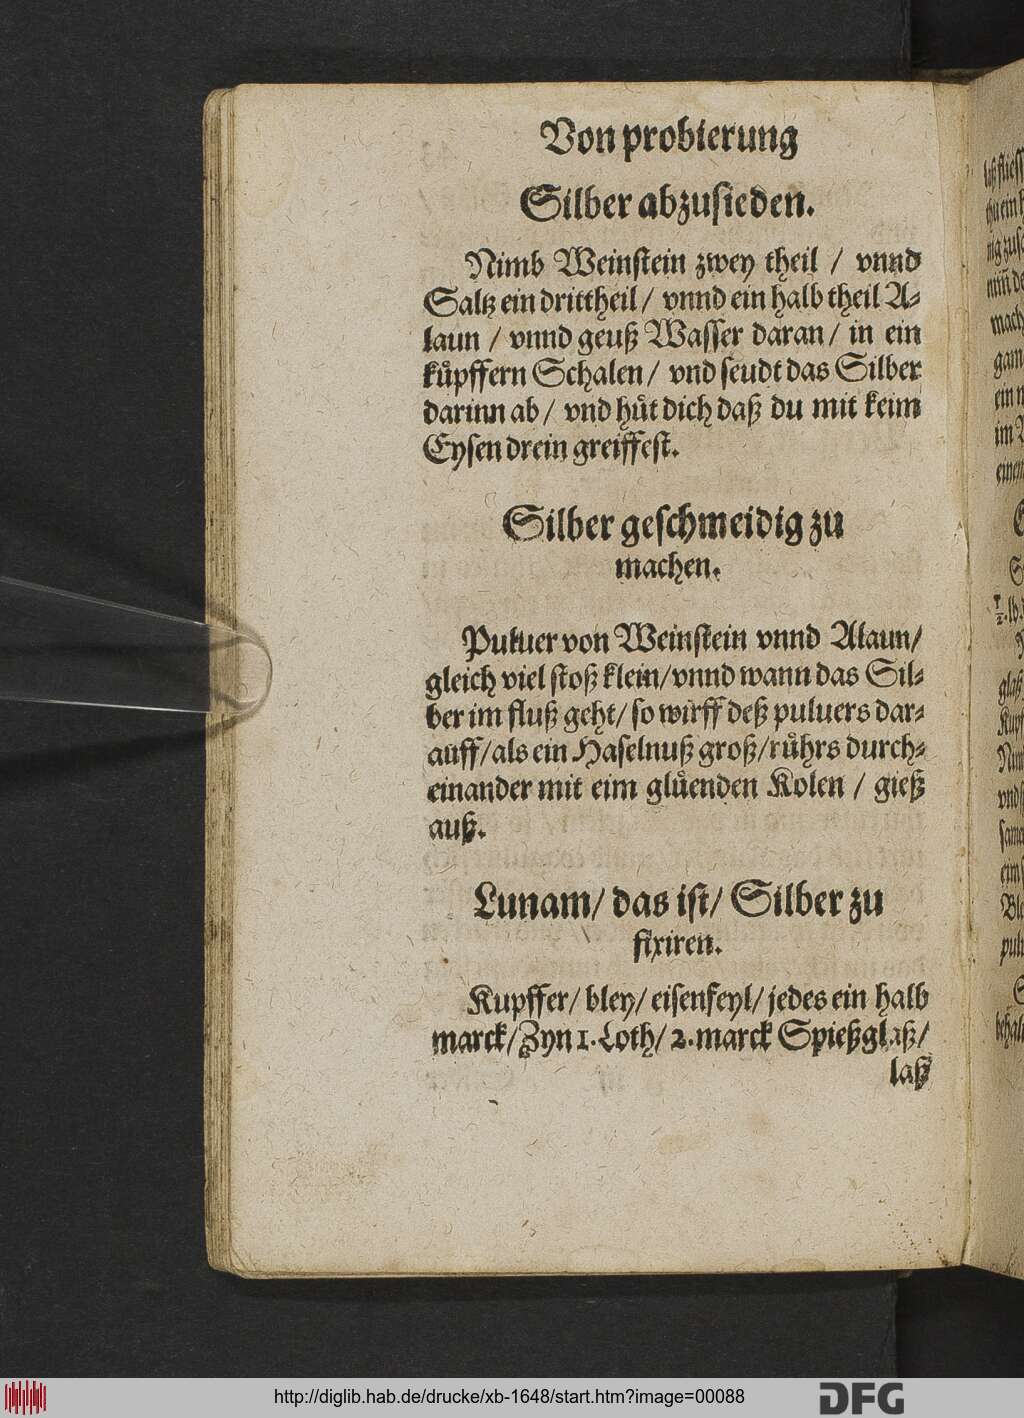 Von probierung
Silber abzusieden.
Nimb Weinstein zwey theil / vnnd
Saltz ein drittheil / vnnd ein halb theil A⸗
laun / vnnd geuß Wasser daran / in ein
küpffern Schalen / vnd seudt das Silber
darinn ab / vnd hüt dich daß du mit keim
Eysen drein greiffest.
Silber geschmeidig zu
machen.
Puluer von Weinstein vnnd Alaun/
gleich viel stoß klein/vnnd wann das Sil⸗
ber im fluß geht/ so wirff deß puluers dar⸗
auff/als ein Haselnuß groß/rührs durch⸗
einander mit eim glüenden Kolen / gieß
auß.
Lunam/ das ist/ Silber zu
fixiren.
Kupffer/ bley/ eisenfeyl/ jedes ein halb
marck/Zyn 1. Loth/ 2. marck Spießglaß/
laß
http://diglib.hab.de/drucke/xb-1648/start.htm?image=00088
DFG